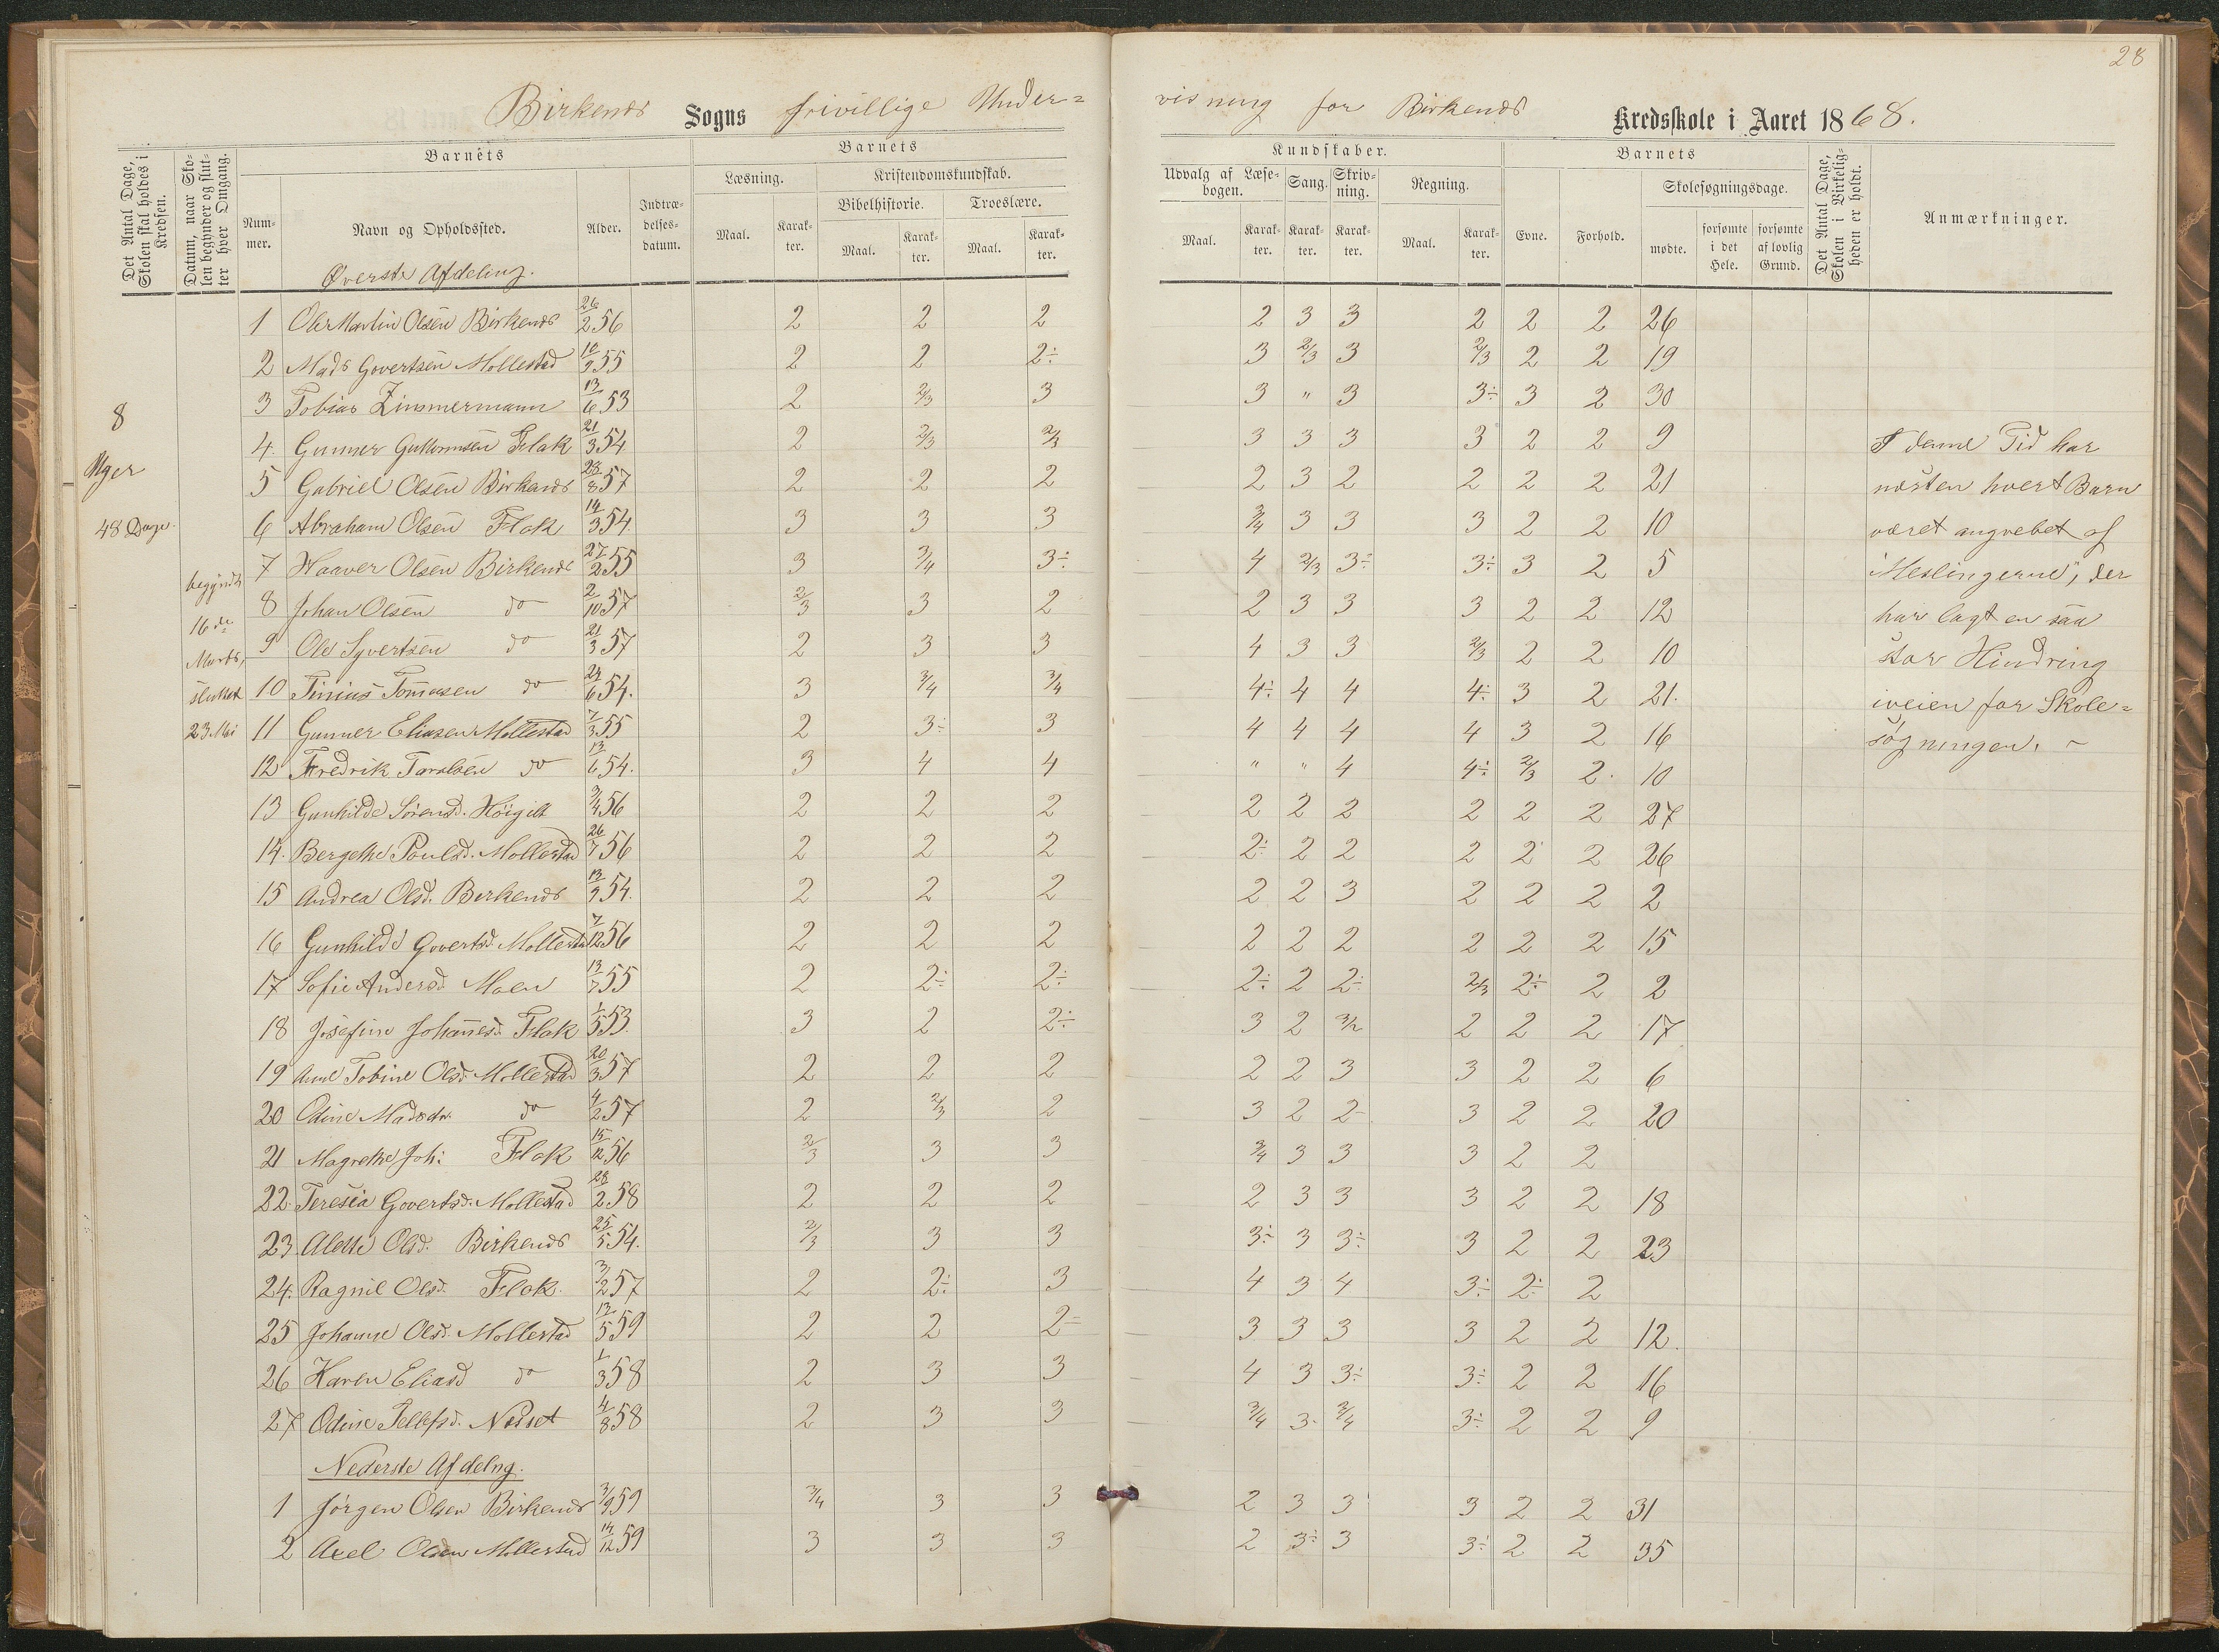 28
Birkenes Sogns frivillige Under=
visning for Birkenes Kredsskole i Aaret 1868.
Det Antal Dage, Skolen skal holdes i Kredsen.
Datum, naar Skolen begynder og slutter hver Omgang.
Barnets
Nummer.
Navn og Opholdssted.
Alder.
Indtrædelsesdatum.
Barnets
Læsning.
Kristendomskundskab.
Bibelhistorie.
Troeslære.
Maal. Karakter. Maal. Karakter. Maal. Karakter.
Kundskaber.
Udvalg af Læsebogen. Sang. Skrivning. Regning.
Maal. Karakter. Karakter. Karakter. Maal. Karakter.
Barnets
Evne. Forhold.
Skolesøgningsdage.
mødte. forsømte i det Hele. forsømte af lovlig Grund.
Det Antal Dage, Skolen i Virkeligheden er holdt.
Anmærkninger.
Øverste Afdeling.
1 Ole Martin Olsen Birkenes 26/2 56 2 2 2 2 3 3 2 2 2 26
2 Mads Govertsen Mollestad 10/9 55 2 2 2÷ 3 2/3 3 2/3 2 2 19
3 Tobias Zimmermann 13/6 53 2 2/3 3 3 " 3 3÷ 3 2 30
4. Gunner Guttormsen Flak 21/3 54 2 2/3 2/3 3 3 3 3 2 2 9
5 Gabriel Olsen Birkenes 28/8 57 2 2 2 2 3 2 2 2 2 21
6 Abraham Olsen Flak 14/3 54 3 3 3 3/4 3 3 3 2 2 10
7 Haaver Olsen Birkenes 27/2 55 3 3/4 3÷ 4 2/3 3÷ 3÷ 3 2 5
8 Johan Olsen do 2/10 57 2/3 3 2 2 3 3 3 2 2 12
9 Ole Syvertsen do 21/3 57 2 3 3 4 3 3 2/3 2 2 10
10 Tinius Tomasen do 24/6 54. 3 3/4 3/4 4÷ 4 4 4÷ 3 2 21.
11 Gunner Eliasen Mollestad 7/3 55 2 3÷ 3 4 4 4 4 3 2 16
12 Fredrik Taralsen do 13/6 54. 3 4 4 " " 4 4÷ 2/3 2. 10
13 Gunhilde Sörensd. Höigilt 3/4 56 2 2 2 2 2 2 2 2 2 27
14. Bergethe Poulsd. Mollestad 26/7 56 2 2 2 2÷ 2 2 2 2 2 26
15 Andrea Olsd. Birkenes 13/9 54. 2 2 2 2 2 3 2 2 2 2
16 Gunhilde Govertsd. Mollestad 7/12 56 2 2 2 2 2 2 2 2 2 15
17 Sofie Andersd. Moen 13/7 55 2 2÷ 2÷ 2÷ 2 2÷ 2/3 2÷ 2 2
18 Josefine Johanesd. Flak 1/5 53. 3 2 2÷ 3 2 3/2 2 2 2 17
19 Anne Tobine Olsd. Mollestad 20/3 57 2 2 2 2 2 3 3 2 2 6
20 Odine Madsdr. do 4/2 57 2 2/3 2 3 2 2 3 2 2 20
21 Magrethe Joh: Flak 15/12 56 2/3 3 3 3/4 3 3 3 2 2
22. Teresia Govertsd. Mollestad 28/2 58 2 2 2 2 3 3 3 2 2 18
23 Alette Olsd. Birkenes 25/5 54. 2/3 3 3 3÷ 3 3÷ 3 2 2 23
24. Ragnil Olsd. Flak. 3/2 57 2 2÷ 3 4 3 4 3÷ 2÷ 2
25 Johanne Olsd. Mollestad 13/5 59 2 2 2÷ 3 3 3 3 2 2 12.
26 Karen Eliasd do 1/3 58 2 3 3 4 3 3÷ 3÷ 2 2 16
27 Odine Tellefsd. Neset 4/8 58 2 3 3 3/4 3 3/4 3÷ 2 2 9
Nederste Afdelng.
1 Jörgen Olsen Birkenes 3/9 59 3/4 3 3 2 3 3 3 2 2 31
2 Axel Olsen Mollestad 14/12 59 3 3 3 2 3÷ 3 3÷ 2 2 35
8
Uger
48 Dage.
begyndt
16de
Marts,
sluttet
23 Mai
I denne Tid har
næsten hvert Barn
været angrebet af
"Meslingerne", der
har lagt en saa
stor Hindring
iveien for Skole=
søgningen. -